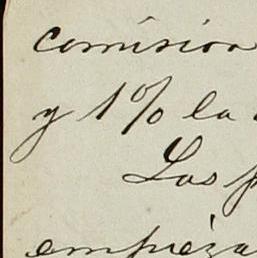 comision
y 1% la
Las p
empieza